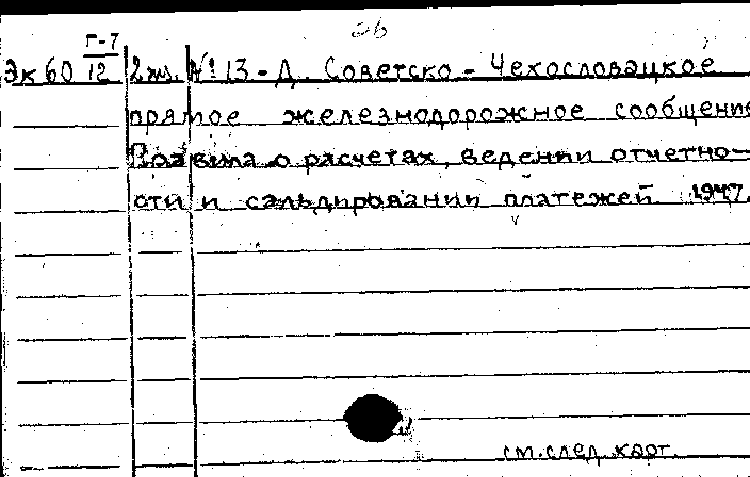 Г-7
Эк 60 12 2 эк. № 13-Д. Советско-Чехословацкое
прямое железнодорожное сообщение
Правила о расчетах, ведении отчетно-
сти и сальдировании платежей. 1947.
см. след. карт.